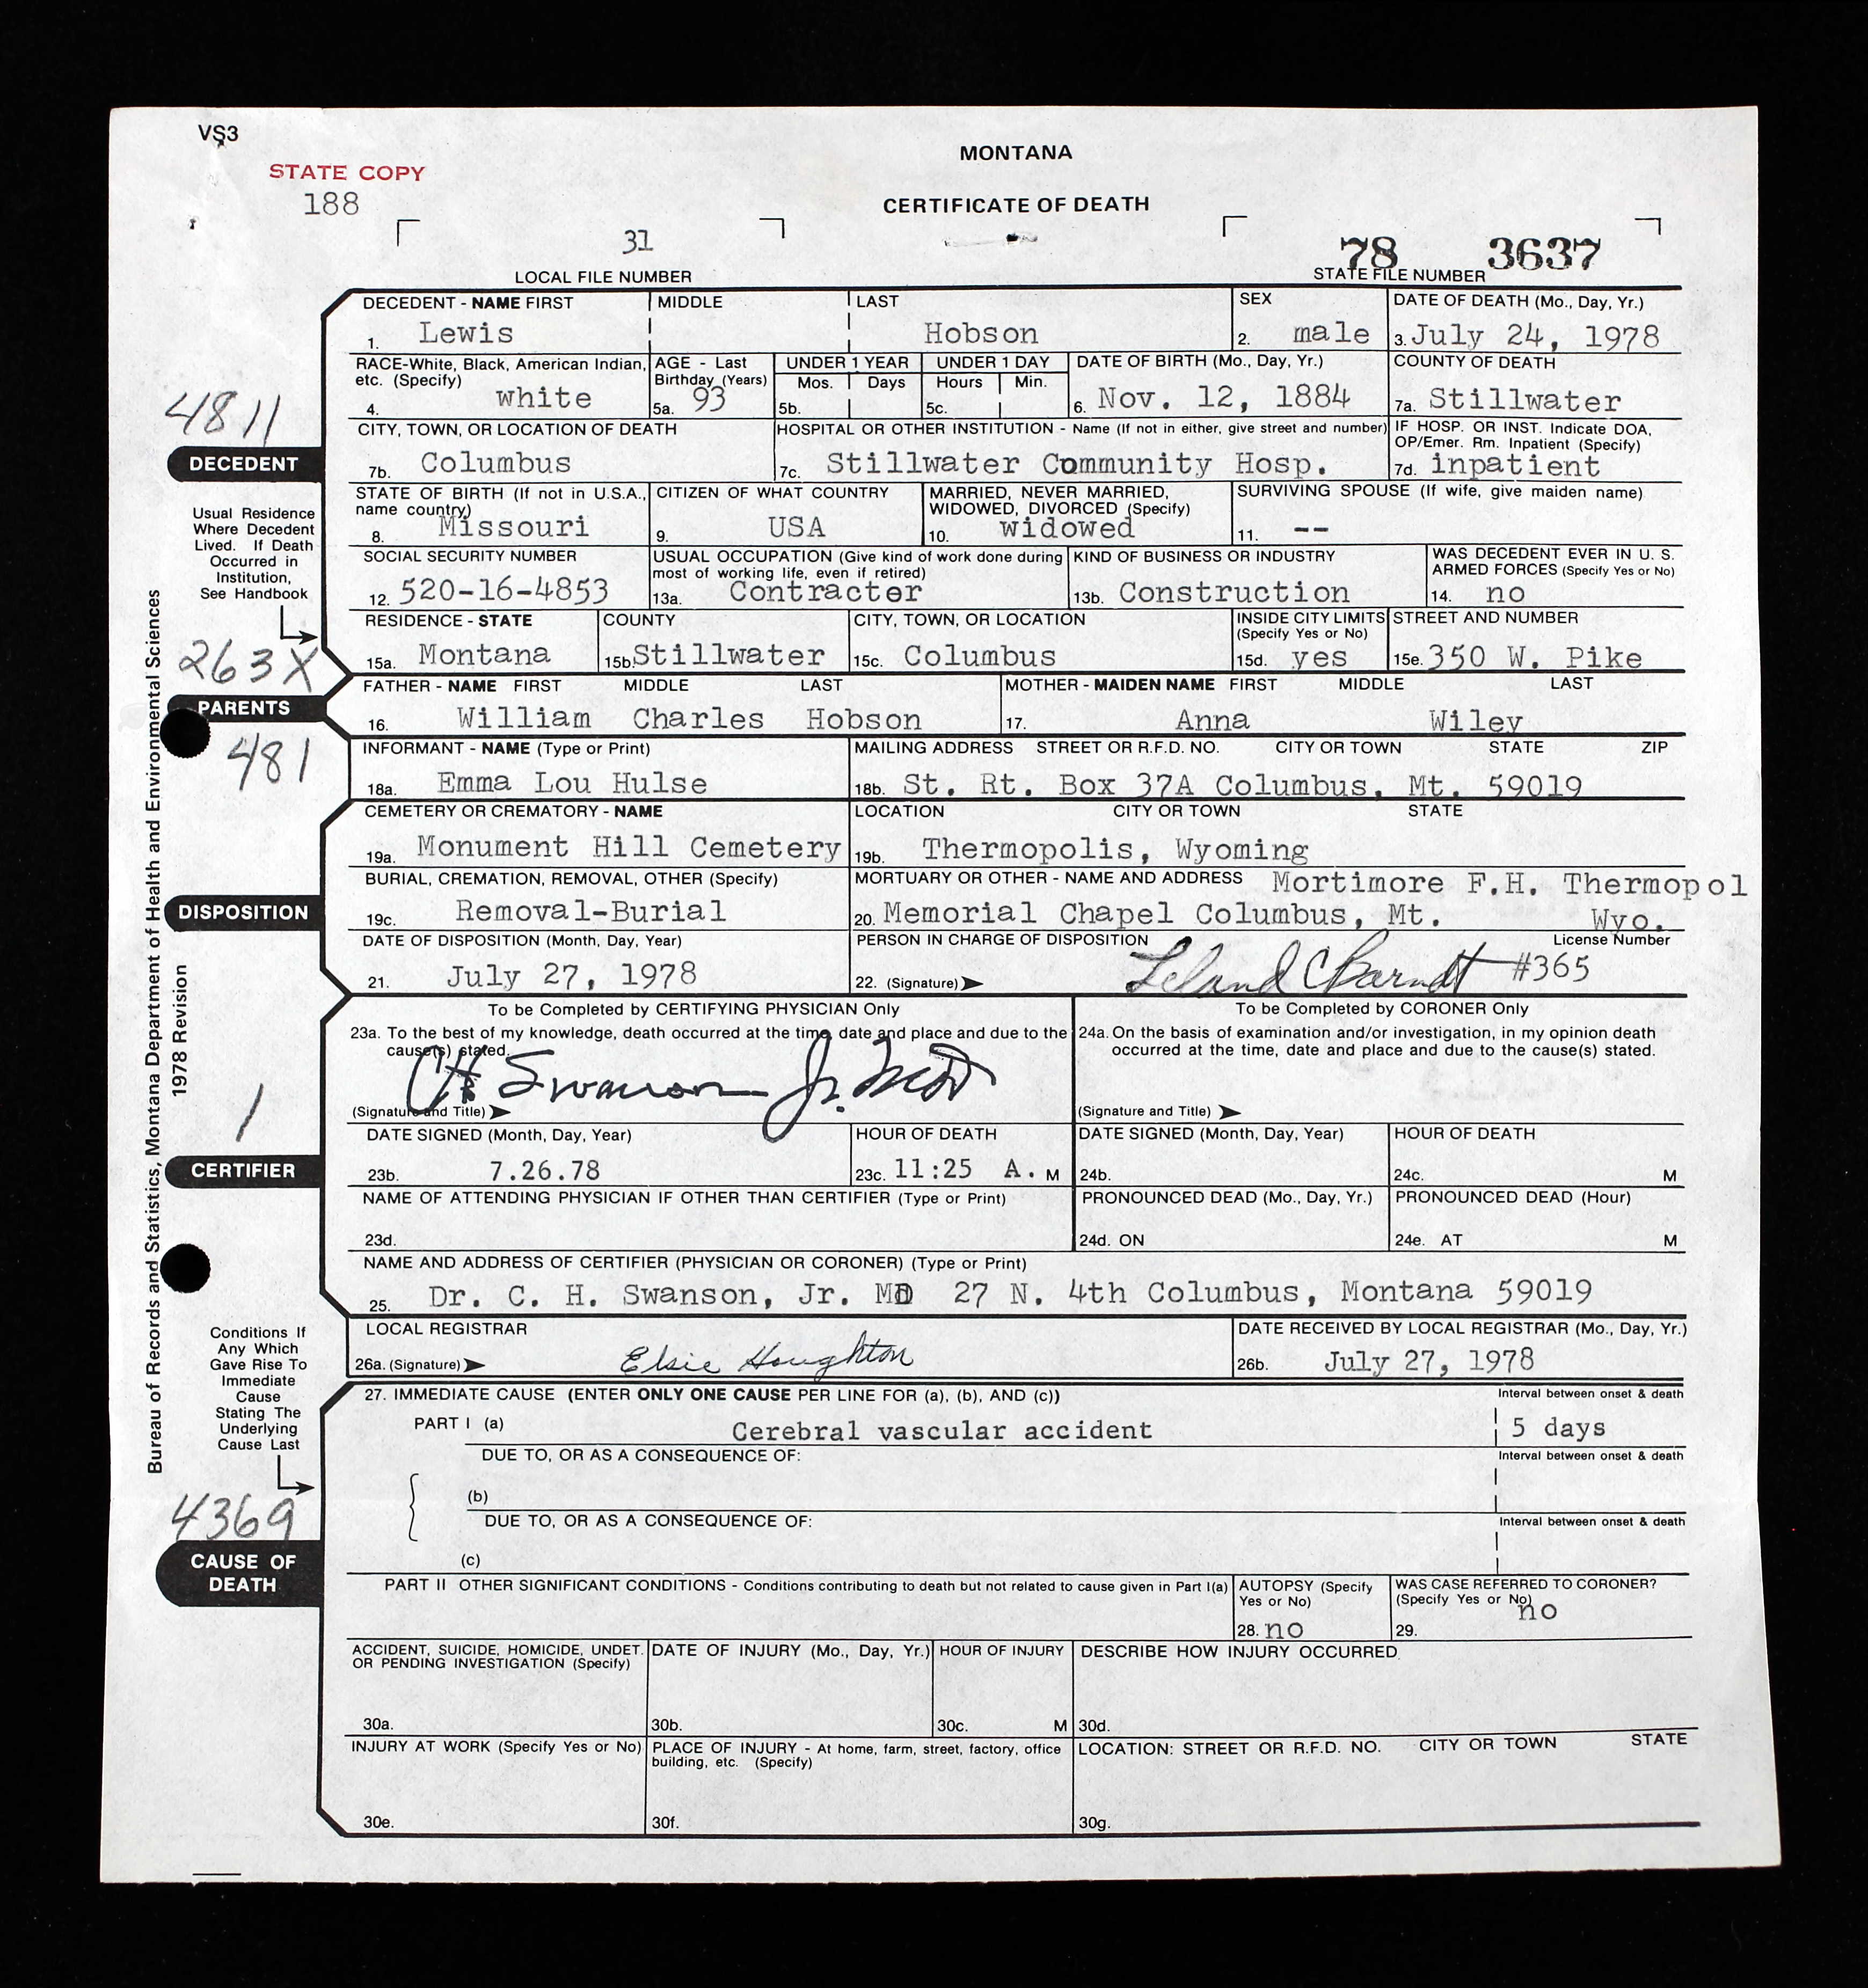 VS3
STATE COPY
188
MONTANA
CERTIFICATE OF DEATH
31
LOCAL FILE NUMBER
78 3637
STATE FILE NUMBER
DECEDENT - NAME FIRST MIDDLE LAST SEX DATE OF DEATH (Mo., Day, Yr.)
1. Lewis Hobson 2. male 3. July 24, 1978
RACE-White, Black, American Indian, etc. (Specify) AGE - Last Birthday (Years) UNDER 1 YEAR UNDER 1 DAY DATE OF BIRTH (Mo., Day, Yr.) COUNTY OF DEATH
Mos. Days Hours Min.
4. white 5a. 93 5b. 5c. 6. Nov. 12, 1884 7a. Stillwater
4811
DECEDENT
CITY, TOWN, OR LOCATION OF DEATH HOSPITAL OR OTHER INSTITUTION - Name (If not in either, give street and number) IF HOSP. OR INST. Indicate DOA, OP/Emer. Rm. Inpatient (Specify)
7b. Columbus 7c. Stillwater Community Hosp. 7d. inpatient
STATE OF BIRTH (If not in U.S.A., name country) CITIZEN OF WHAT COUNTRY MARRIED, NEVER MARRIED, WIDOWED, DIVORCED (Specify) SURVIVING SPOUSE (If wife, give maiden name)
8. Missouri 9. USA 10. widowed 11. --
Usual Residence
Where Decedent
Lived. If Death
Occurred in
Institution,
See Handbook
SOCIAL SECURITY NUMBER USUAL OCCUPATION (Give kind of work done during most of working life, even if retired) KIND OF BUSINESS OR INDUSTRY WAS DECEDENT EVER IN U. S. ARMED FORCES (Specify Yes or No)
12. 520-16-4853 13a. Contracter 13b. Construction 14. no
RESIDENCE - STATE COUNTY CITY, TOWN, OR LOCATION INSIDE CITY LIMITS (Specify Yes or No) STREET AND NUMBER
15a. Montana 15b. Stillwater 15c. Columbus 15d. yes 15e. 350 W. Pike
263X
PARENTS
FATHER - NAME FIRST MIDDLE LAST MOTHER - MAIDEN NAME FIRST MIDDLE LAST
16. William Charles Hobson 17. Anna Wiley
481
INFORMANT - NAME (Type or Print) MAILING ADDRESS STREET OR R.F.D. NO. CITY OR TOWN STATE ZIP
18a. Emma Lou Hulse 18b. St. Rt. Box 37A Columbus, Mt. 59019
CEMETERY OR CREMATORY - NAME LOCATION CITY OR TOWN STATE
19a. Monument Hill Cemetery 19b. Thermopolis, Wyoming
DISPOSITION
BURIAL, CREMATION, REMOVAL, OTHER (Specify) MORTUARY OR OTHER - NAME AND ADDRESS Mortimore F.H. Thermopol
19c. Removal-Burial 20. Memorial Chapel Columbus, Mt. Wyo.
DATE OF DISPOSITION (Month, Day, Year) PERSON IN CHARGE OF DISPOSITION License Number
21. July 27, 1978 22. (Signature) Leland C Barndt #365
Bureau of Records and Statistics, Montana Department of Health and Environmental Sciences
1978 Revision
To be Completed by CERTIFYING PHYSICIAN Only To be Completed by CORONER Only
23a. To the best of my knowledge, death occurred at the time, date and place and due to the cause(s) stated.
24a. On the basis of examination and/or investigation, in my opinion death occurred at the time, date and place and due to the cause(s) stated.
(Signature and Title) CH Swanson Jr. (Signature and Title)
1
CERTIFIER
DATE SIGNED (Month, Day, Year) HOUR OF DEATH DATE SIGNED (Month, Day, Year) HOUR OF DEATH
23b. 7.26.78 23c. 11:25 A. M 24b. 24c. M
NAME OF ATTENDING PHYSICIAN IF OTHER THAN CERTIFIER (Type or Print) PRONOUNCED DEAD (Mo., Day, Yr.) PRONOUNCED DEAD (Hour)
23d. 24d. ON 24e. AT M
NAME AND ADDRESS OF CERTIFIER (PHYSICIAN OR CORONER) (Type or Print)
25. Dr. C. H. Swanson, Jr. MD 27 N. 4th Columbus, Montana 59019
LOCAL REGISTRAR DATE RECEIVED BY LOCAL REGISTRAR (Mo., Day, Yr.)
26a. (Signature) Elsie Houghton 26b. July 27, 1978
Conditions If
Any Which
Gave Rise To
Immediate
Cause
Stating The
Underlying
Cause Last
27. IMMEDIATE CAUSE (ENTER ONLY ONE CAUSE PER LINE FOR (a), (b), AND (c)) Interval between onset & death
PART I (a) Cerebral vascular accident 5 days
DUE TO, OR AS A CONSEQUENCE OF: Interval between onset & death
(b)
DUE TO, OR AS A CONSEQUENCE OF: Interval between onset & death
(c)
4369
CAUSE OF
DEATH
PART II OTHER SIGNIFICANT CONDITIONS - Conditions contributing to death but not related to cause given in Part I(a) AUTOPSY (Specify Yes or No) WAS CASE REFERRED TO CORONER? (Specify Yes or No)
28. no 29. no
ACCIDENT, SUICIDE, HOMICIDE, UNDET. OR PENDING INVESTIGATION (Specify) DATE OF INJURY (Mo., Day, Yr.) HOUR OF INJURY DESCRIBE HOW INJURY OCCURRED
30a. 30b. 30c. M 30d.
INJURY AT WORK (Specify Yes or No) PLACE OF INJURY - At home, farm, street, factory, office building, etc. (Specify) LOCATION: STREET OR R.F.D. NO. CITY OR TOWN STATE
30e. 30f. 30g.